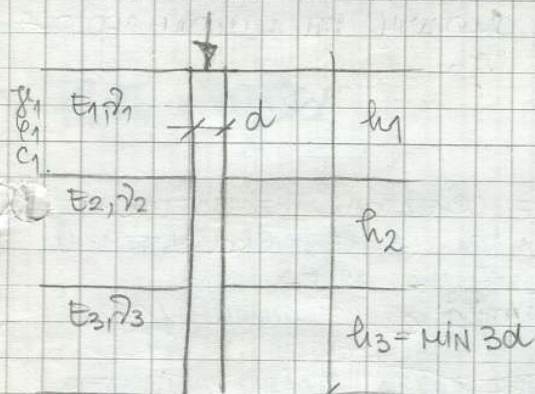 γ1
φ1
C1
E1, ν1
d
h1
E2, ν2
h2
E3, ν3
h3 = MIN 3d